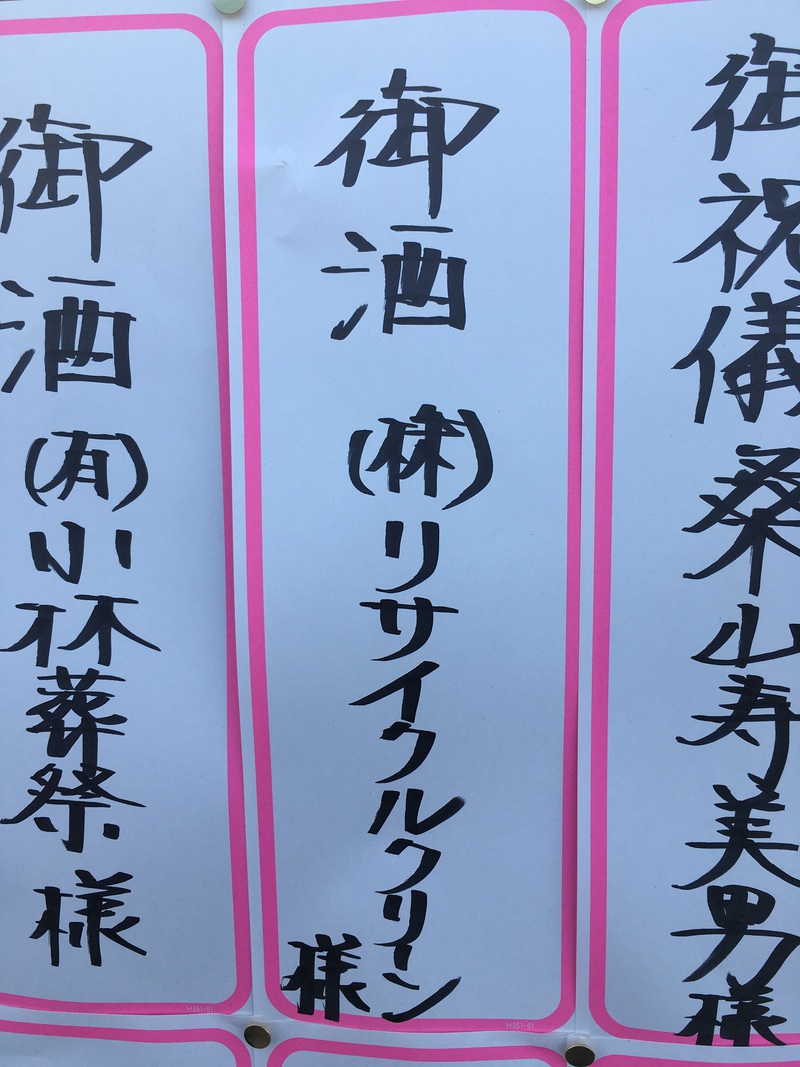 御祝儀 桑山寿美男様
御酒 (株)リサイクルクリーン様
御酒 (有)小林葬祭様